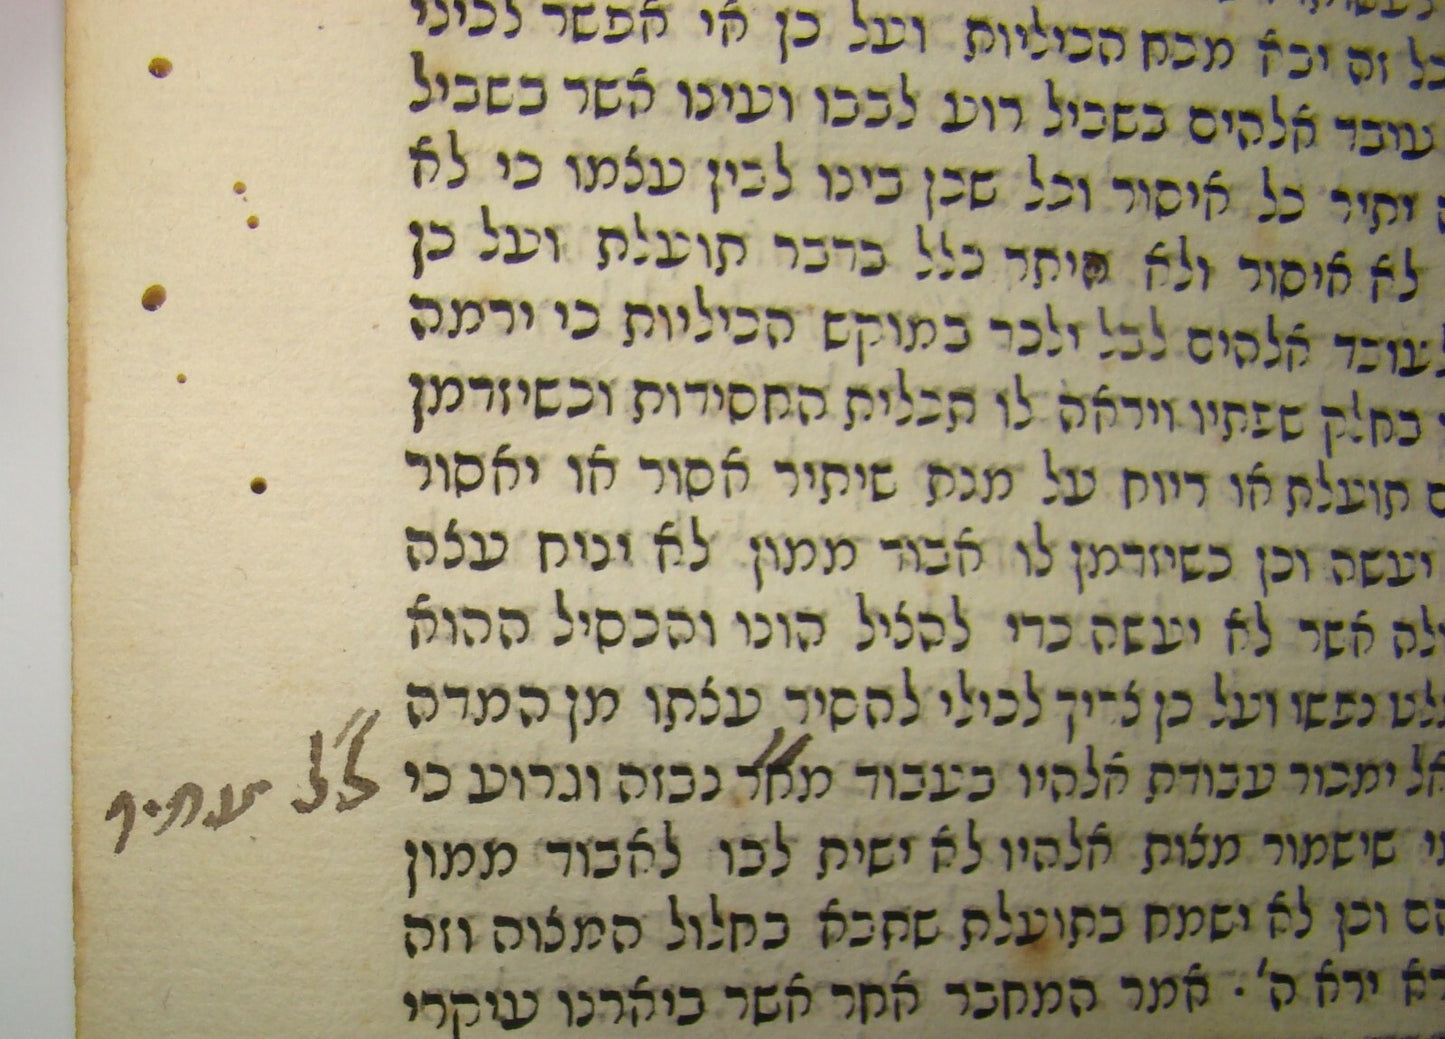 כל זה יבא מכח הכיליות ועל כן אי אפשר לכיני
עובד אלהים בשביל רוע לבבו ועינו אשר בשביל
יתיר כל איסור וכל שכן בינו לבין עצמו כי לא
לא איסור ולא היתר כלל בדבר תועלת ועל כן
לעובד אלהים לבל ילכד במוקש הכיליות כי ירמה
בחלק שפתיו ויראה לו תכלית החסידות וכשיזדמן
תועלת או ריוח על מנת שיתיר אסור או יאסור
יעשה וכן כשיזדמן לו אבוד ממון לא יניח עצה
אשר לא יעשה כדי להציל הונו והכסיל ההוא
נפשו ועל כן צריך לכילי להסיר עצתו מן המדה
אל ימכור עבודת אלהיו בעבוד מאד נבזה וגרוע כי
ל״ל
שישמור מצות אלהיו לא ישית לבו לאבוד ממון
וכן לא ישמח בתועלת שתבא בחלול המצוה וזה
ירא ה׳ · אמר המחבר אחר אשר ביארנו עיקרי